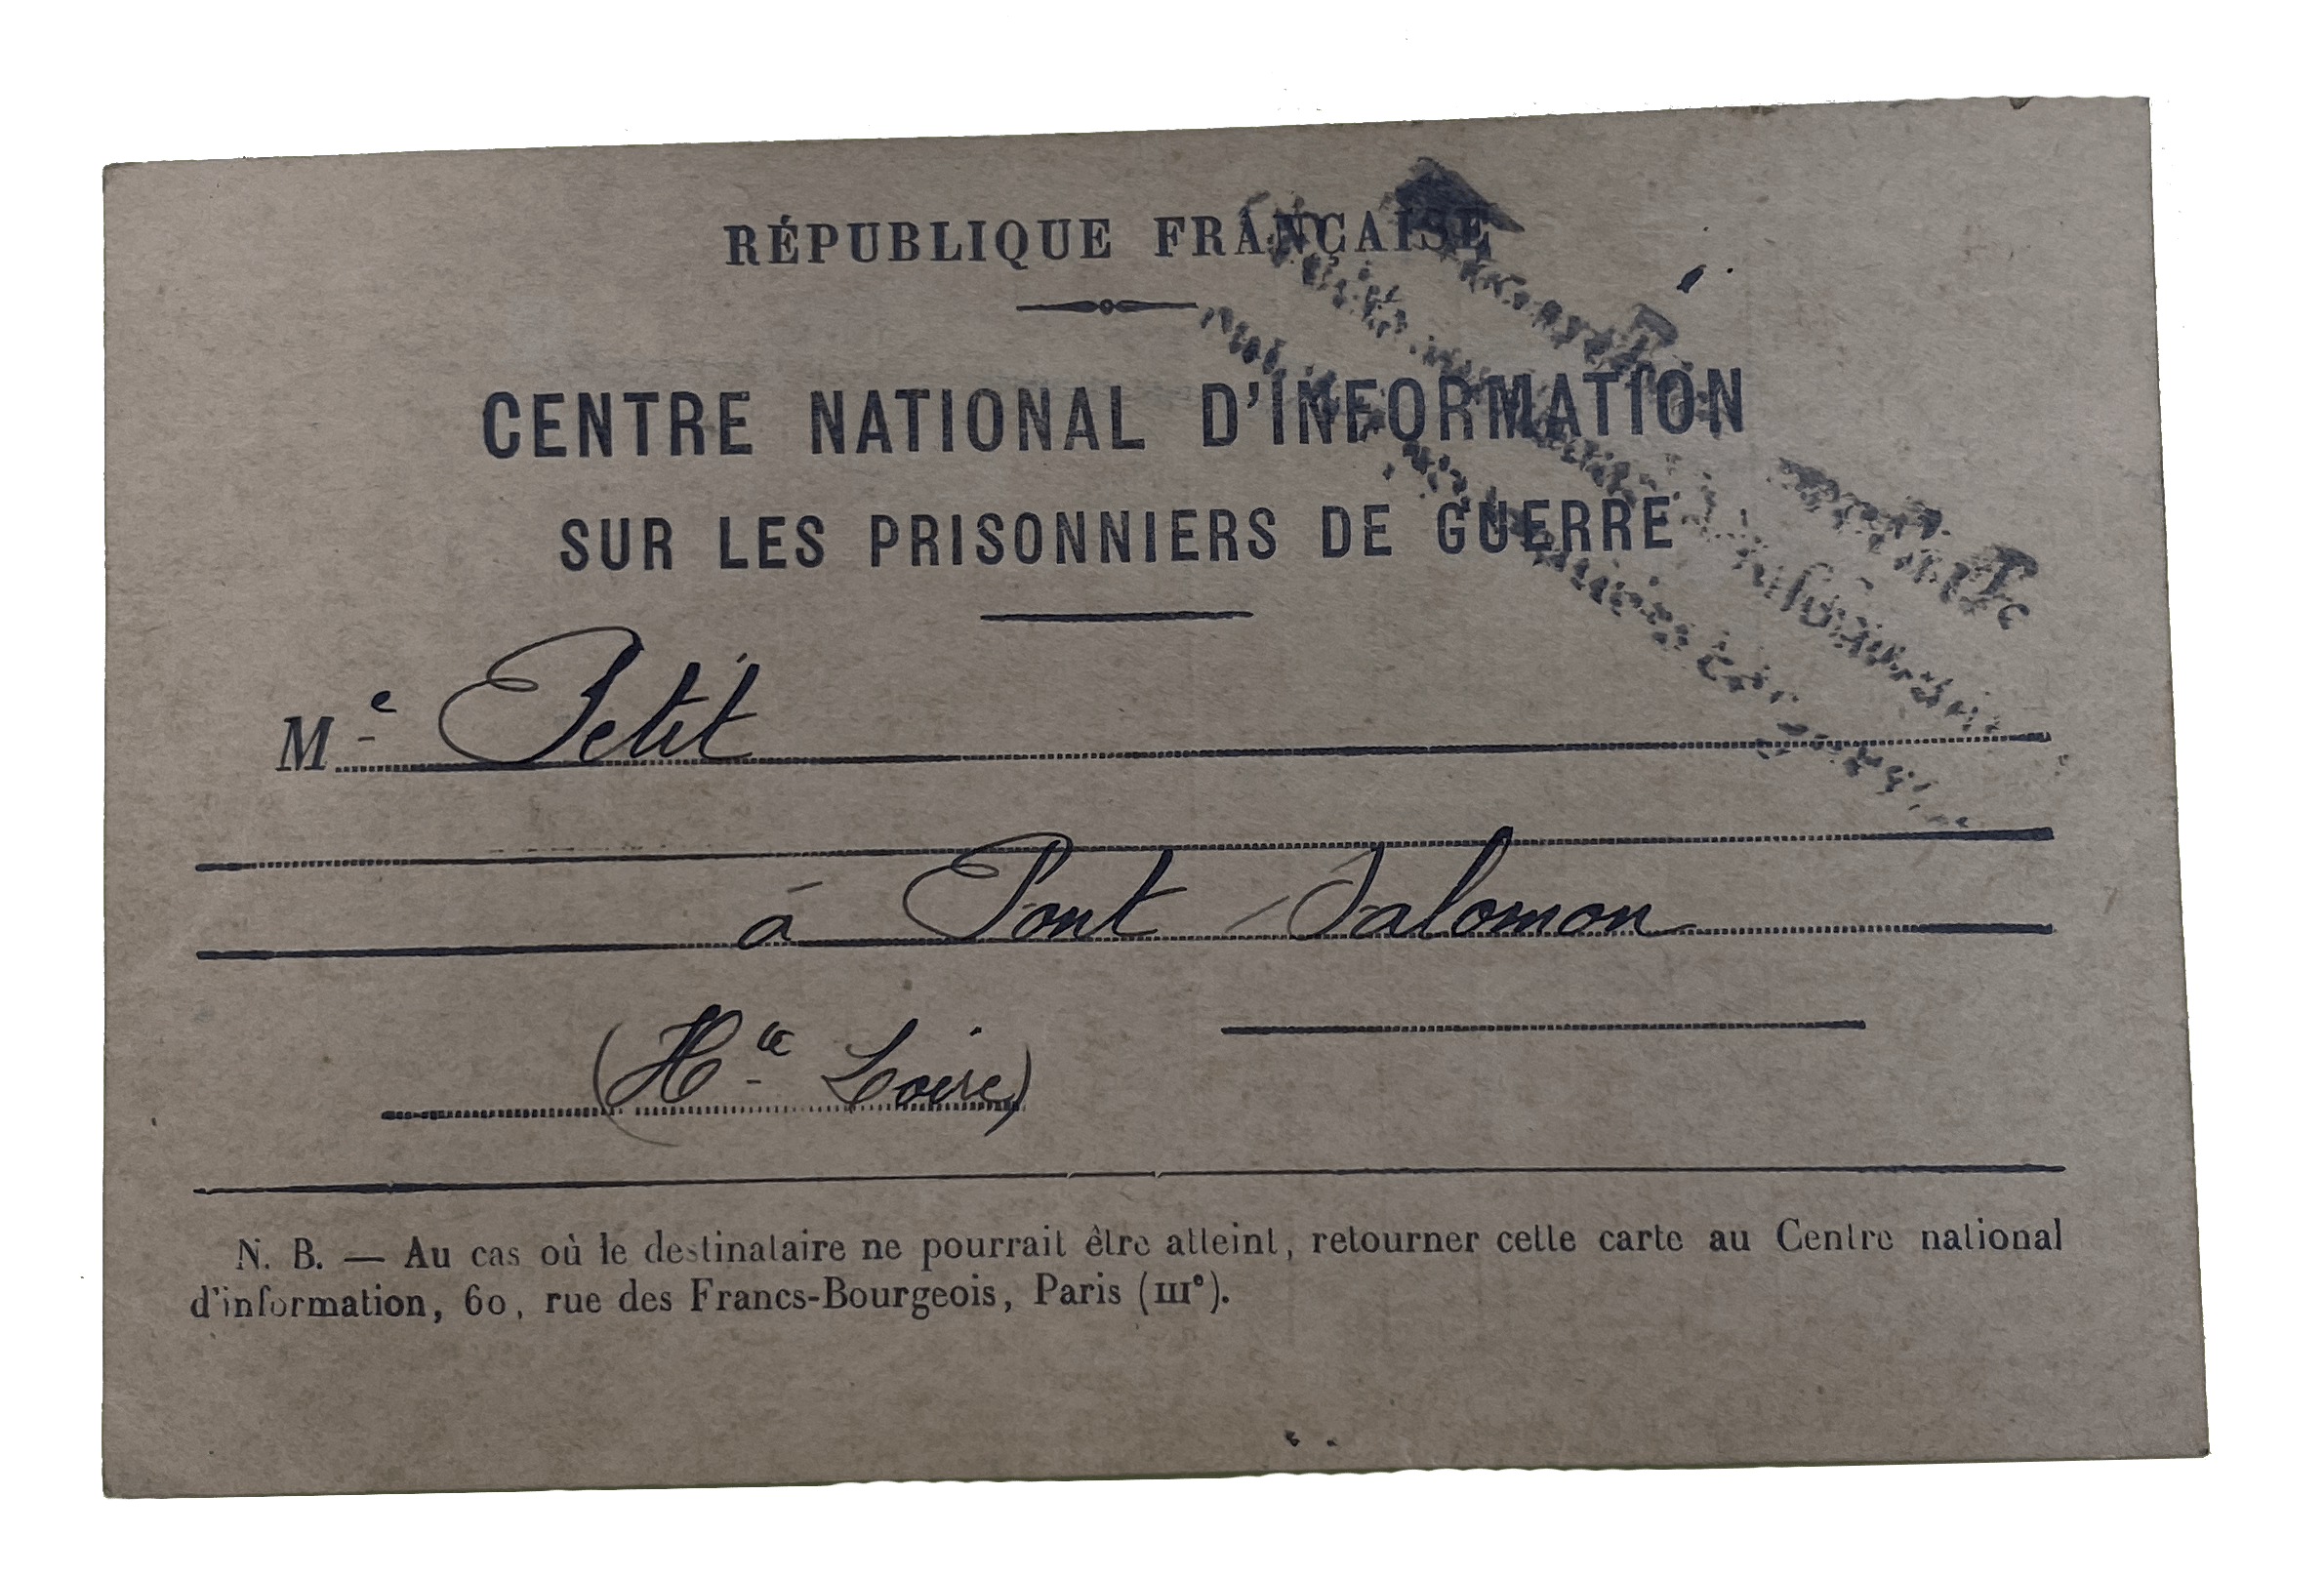 RÉPUBLIQUE FRANÇAISE
CENTRE NATIONAL D'INFORMATION
SUR LES PRISONNIERS DE GUERRE
Me Petit
à Pont Salomon
(Hte Loire)
N. B. — Au cas où le destinataire ne pourrait être atteint, retourner cette carte au Centre national
d'information, 60, rue des Francs-Bourgeois, Paris (IIIe).